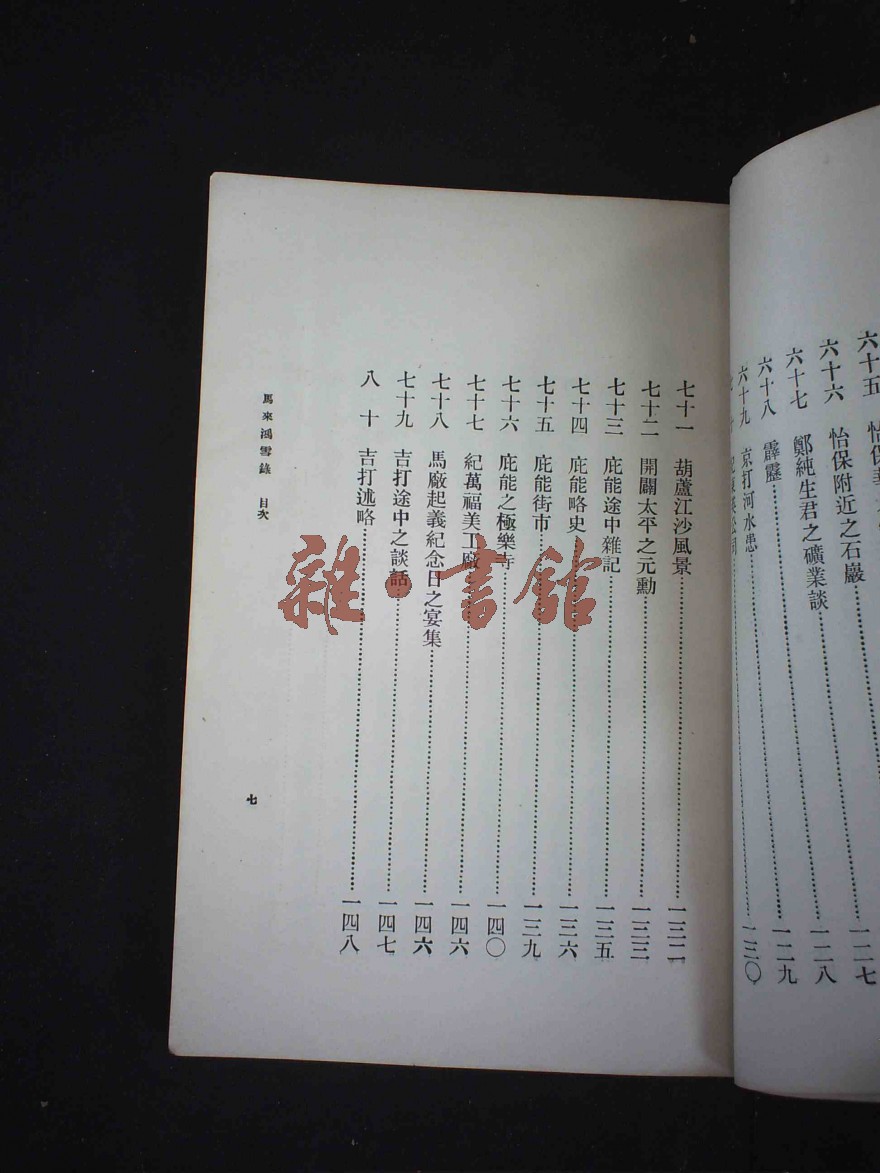 六十五 怡保
六十六 怡保附近之石巖……一二七
六十七 鄭純生君之礦業談……一二八
六十八 霹靂……一二九
六十九 京打河水患……一三〇
七十一 葫蘆江沙風景……一三二
七十二 開闢太平之元勳……一三三
七十三 庇能途中雜記……一三五
七十四 庇能略史……一三六
七十五 庇能街市……一三九
七十六 庇能之極樂寺……一四〇
七十七 紀萬福美工廠……一四六
七十八 馬廠起義紀念日之宴集……一四六
七十九 吉打途中之談話……一四七
八十 吉打述略……一四八
馬來鴻雪錄 目次
七
雜·書館